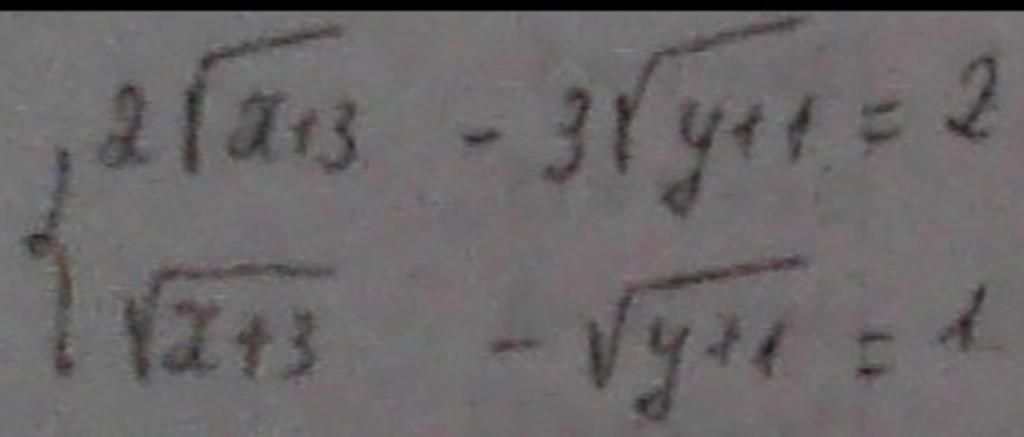 2√(x+3) - 3√(y+1) = 2
√(x+3) - √(y+1) = 1